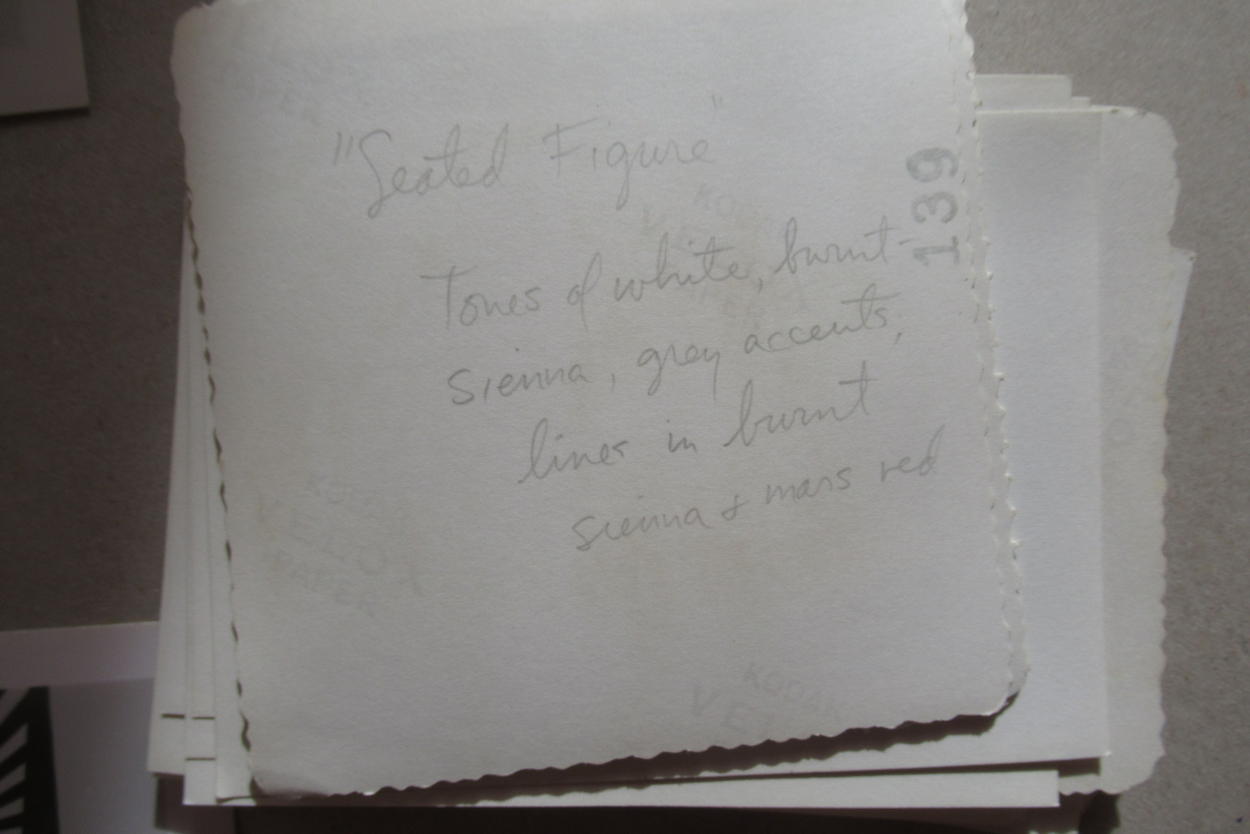 "Seated Figure"
Tones of white, burnt
sienna, grey accents,
lines in burnt
sienna & mars red
139
KODAK
VELOX
PAPER
KODAK
VELOX
PAPER
KODAK